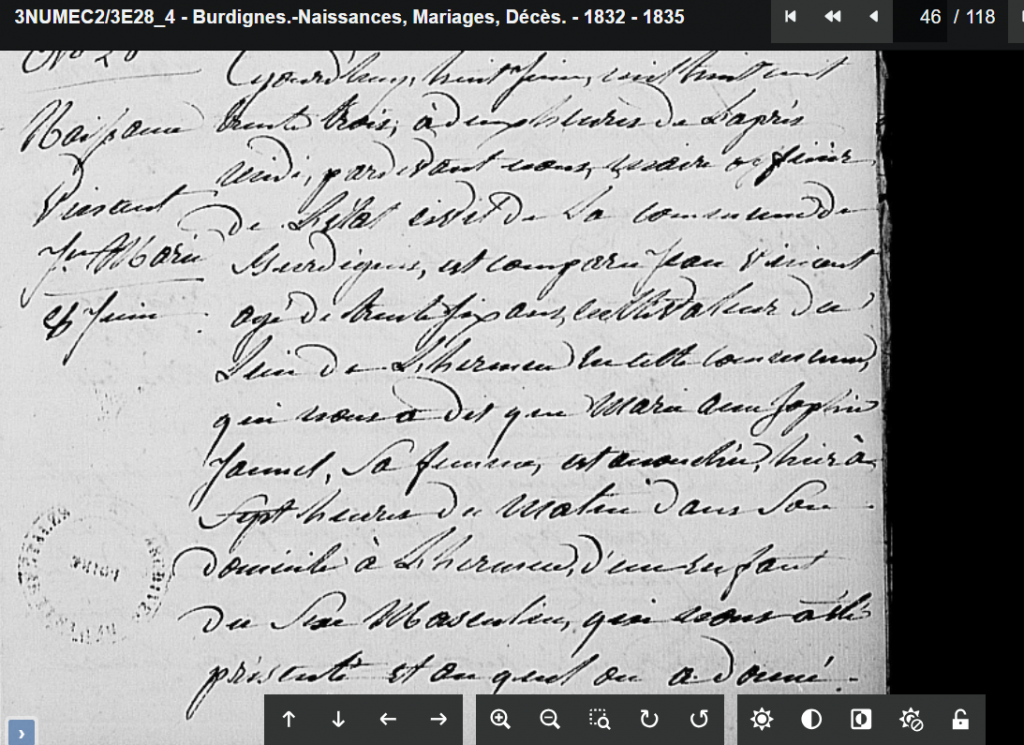 3NUMEC2/3E28_4 - Burdignes.-Naissances, Mariages, Décès. - 1832 - 1835
46 / 118
No 20
Cejourd'huy, huit Juin, mil huit cent
Naissance
trente trois, à deux heures de L'après
midi, pardevant nous, maire officier
Vincent
de L'état civil de La commune de
Jn Marie
Burdignes, est comparu Jean Vincent
Juin
agé de trente six ans, cultivateur du
Lieu de L'hermeu en cette commune,
qui nous a dit que Marie anne Sophie
Sa femme, est accouchée, hier à
Sept heures du Matin dans Son
domicile à L'hermeu, d'un enfant
du Sexe Masculin, qui nous a été
présenté et auquel on a donné
ARCHIVES
LOIRE